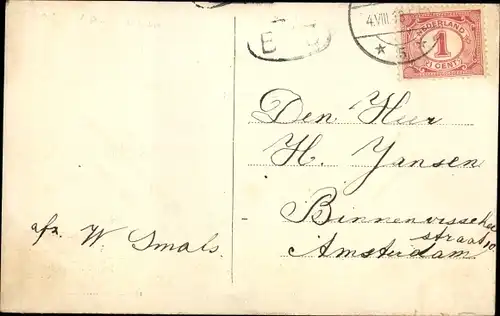 4.VIII
5
NEDERLAND
1
CENT
E
Den Heer
H. Jansen
Binnenvisscher
straat 10
Amsterdam
afz. W. Smals.